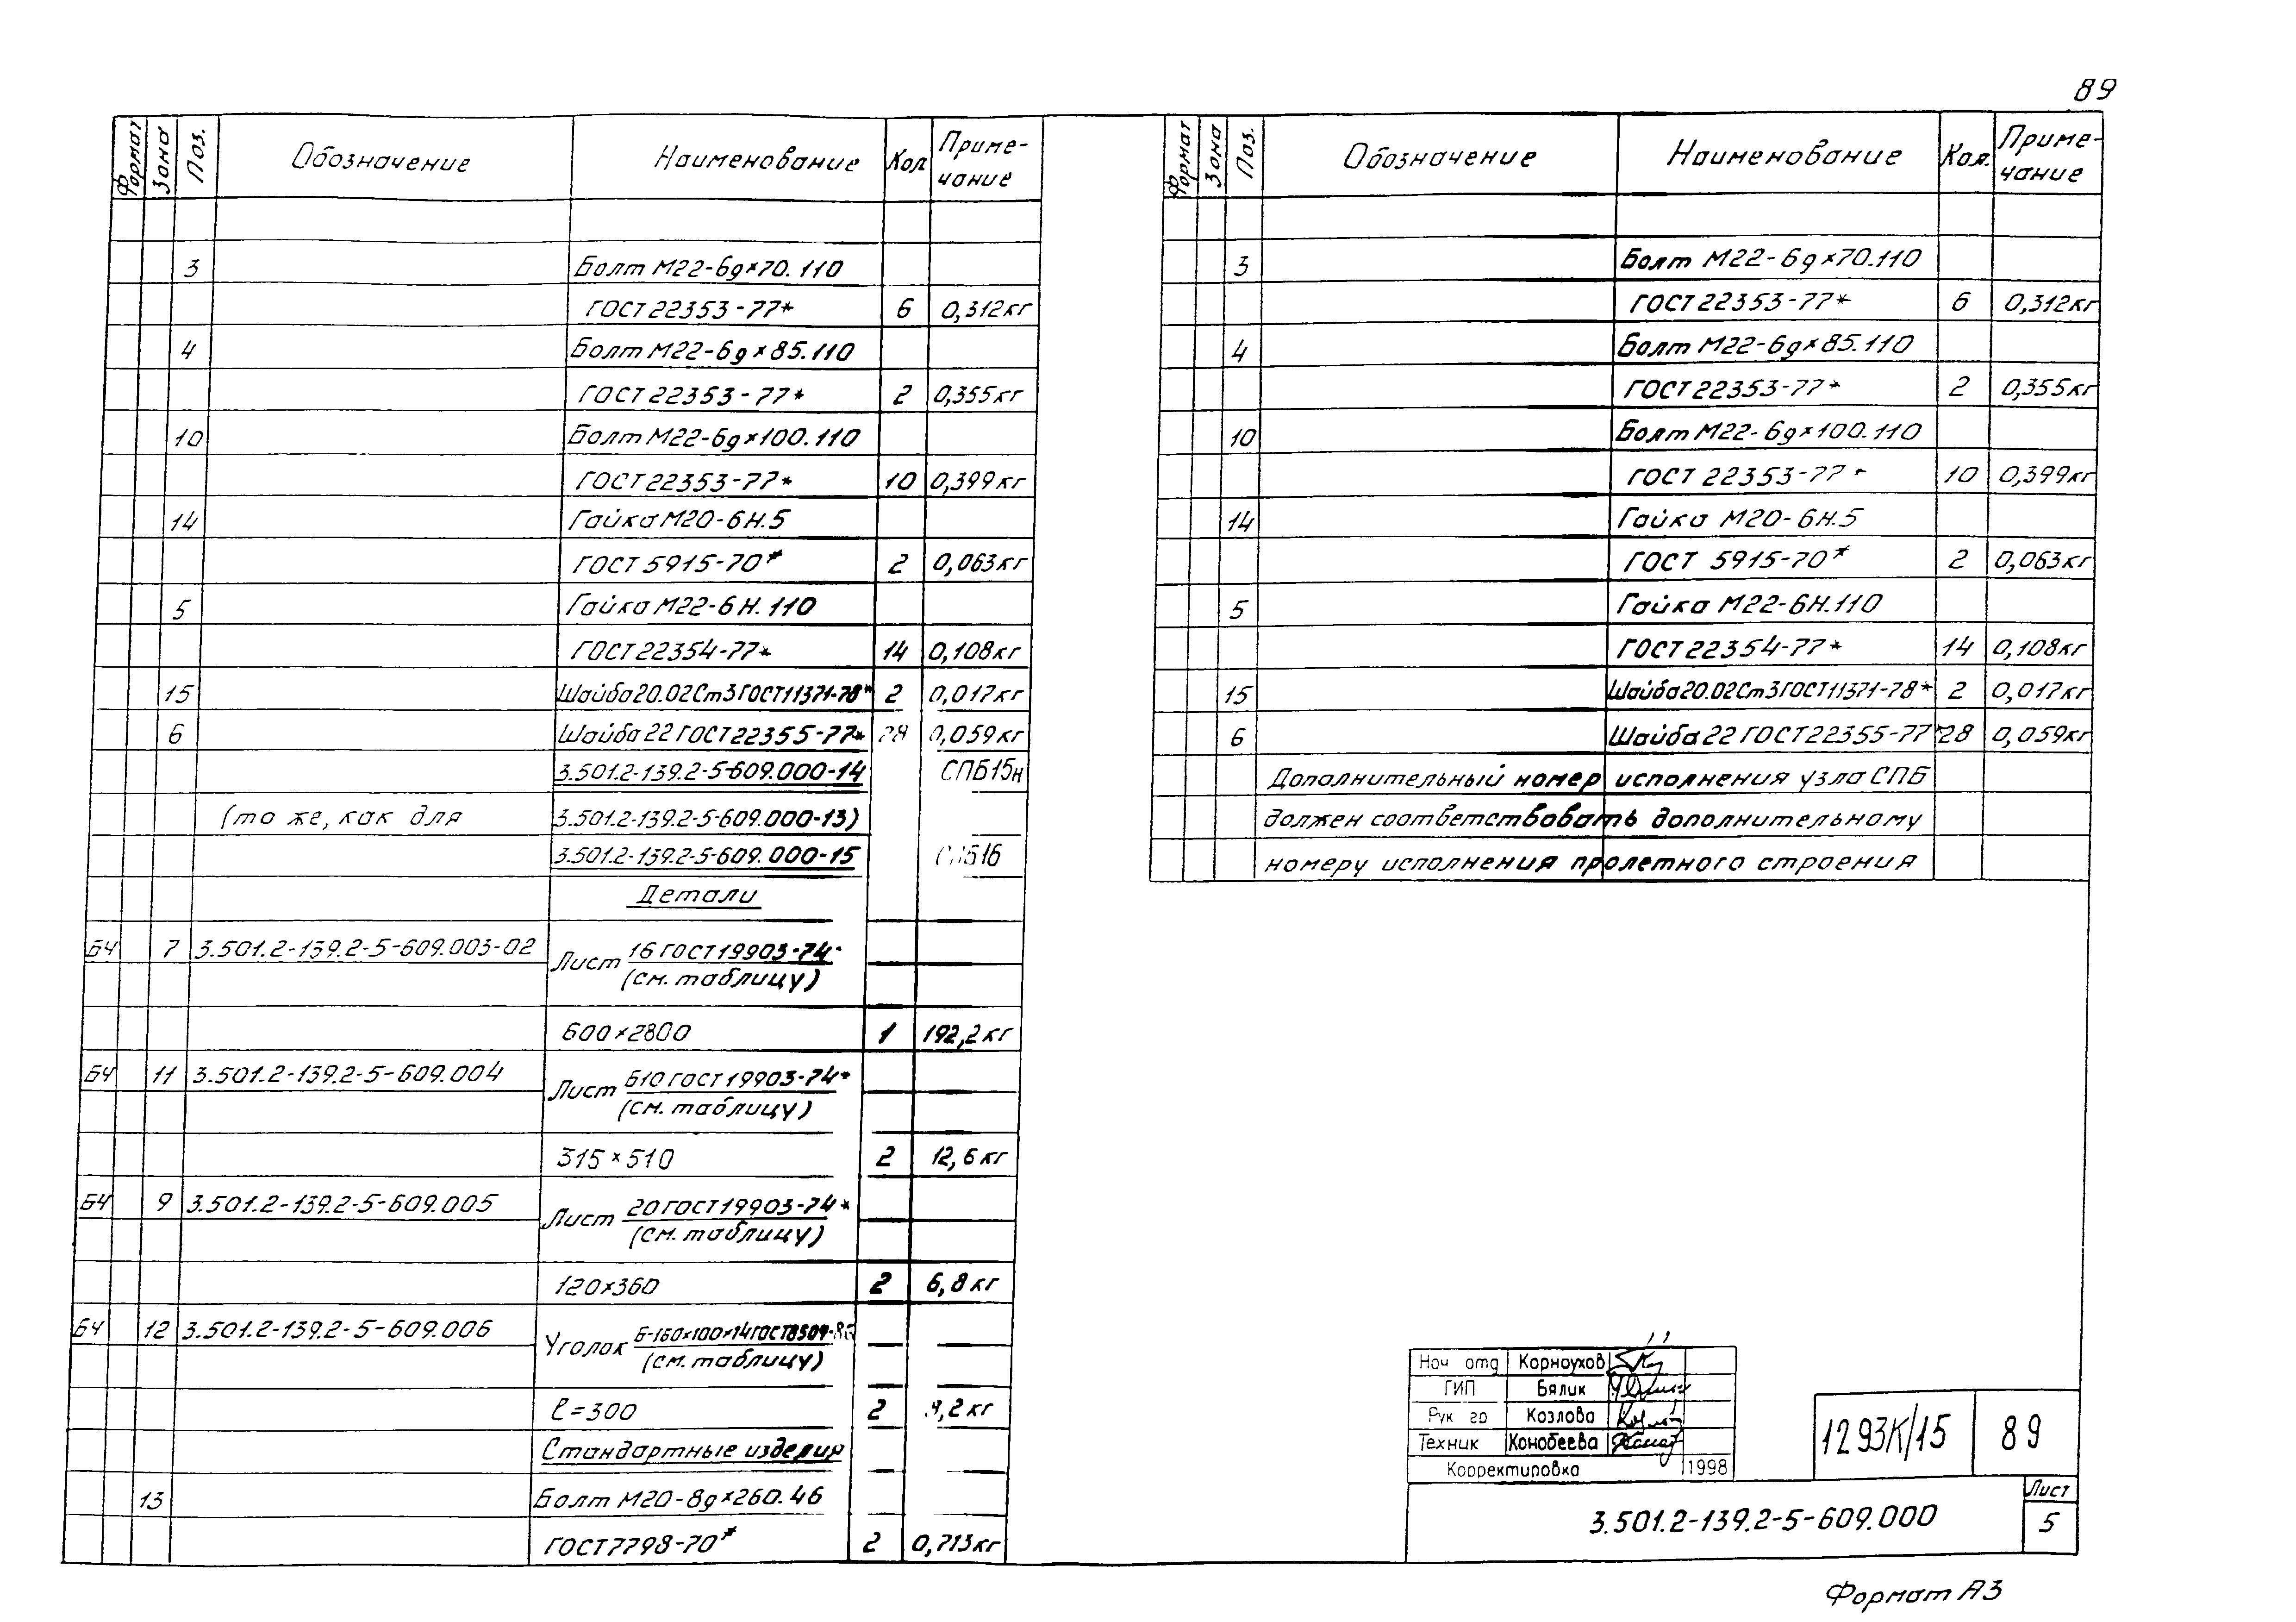 89
Формат Зона Поз. Обозначение Наименование Кол Приме-
чание
3 Болт М22-6g×70.110
ГОСТ 22353-77* 6 0,312кг
4 Болт М22-6g×85.110
ГОСТ 22353-77* 2 0,355кг
10 Болт М22-6g×100.110
ГОСТ 22353-77* 10 0,399кг
14 Гайка М20-6Н.5
ГОСТ 5915-70* 2 0,063кг
5 Гайка М22-6Н.110
ГОСТ 22354-77* 14 0,108кг
15 Шайба 20.02Ст3 ГОСТ 11371-78* 2 0,017кг
6 Шайба 22 ГОСТ 22355-77* 28 0,059кг
3.501.2-139.2-5-609.000-14 СПБ15н
(то же, как для 3.501.2-139.2-5-609.000-13)
3.501.2-139.2-5-609.000-15 СПБ16
Детали
БЧ 7 3.501.2-139.2-5-609.003-02 Лист 16 ГОСТ 19903-74*
(см. таблицу)
600×2800 1 192,2кг
БЧ 11 3.501.2-139.2-5-609.004 Лист Б10 ГОСТ 19903-74*
(см. таблицу)
315×510 2 12,6кг
БЧ 9 3.501.2-139.2-5-609.005 Лист 20 ГОСТ 19903-74*
(см. таблицу)
120×360 2 6,8кг
БЧ 12 3.501.2-139.2-5-609.006 Уголок Б-160×100×14 ГОСТ 8509-86
(см. таблицу)
ℓ=300 2 ,2кг
Стандартные изделия
13 Болт М20-8g×260.46
ГОСТ 7798-70* 2 0,713кг
Формат Зона Поз. Обозначение Наименование Кол. Приме-
чание
3 Болт М22-6g×70.110
ГОСТ 22353-77* 6 0,312кг
4 Болт М22-6g×85.110
ГОСТ 22353-77* 2 0,355кг
10 Болт М22-6g×100.110
ГОСТ 22353-77* 10 0,399кг
14 Гайка М20-6Н.5
ГОСТ 5915-70* 2 0,063кг
5 Гайка М22-6Н.110
ГОСТ 22354-77* 14 0,108кг
15 Шайба 20.02Ст3 ГОСТ 11371-78* 2 0,017кг
6 Шайба 22 ГОСТ 22355-77* 28 0,059кг
Дополнительный номер исполнения узла СПБ
должен соответствовать дополнительному
номеру исполнения пролетного строения
Нач отд Корноухов
ГИП Бялик
Рук гр Козлова
Техник Конобеева
Корректировка 1998
1293К/15 89
3.501.2-139.2-5-609.000 Лист
5
Формат А3